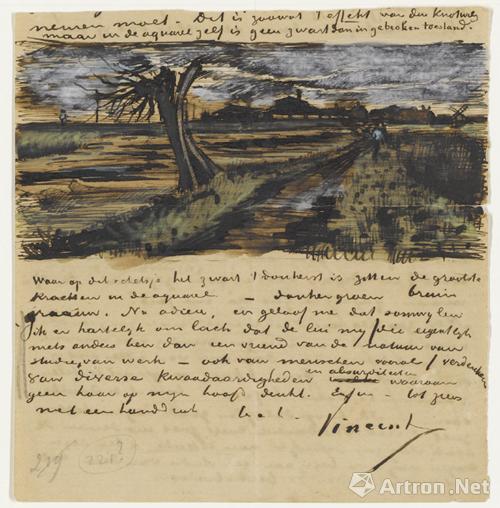 nemen moet. Dit is zoowat 't effekt van den knotwilg
maar in de aquarel zelf is geen zwart dan in gebroken toestand.
Waar op dit schetsje het zwart 't donkerst is zitten de grootste
krachten in de aquarel – donkergroen bruin
graauw. Nu adieu, en geloof me dat somwylen
ik er hartelyk om lach dat de lui my / die eigentlyk
niets anders ben dan een vriend van de natuur van
studie, van werk – ook van menschen vooral / verdenken
van diverse kwaadaardigheden en absurditeiten waaraan
geen haar op myn hoofd denkt. Enfin – tot ziens
met een handdruk
Vincent
219
221?
Artron.Net